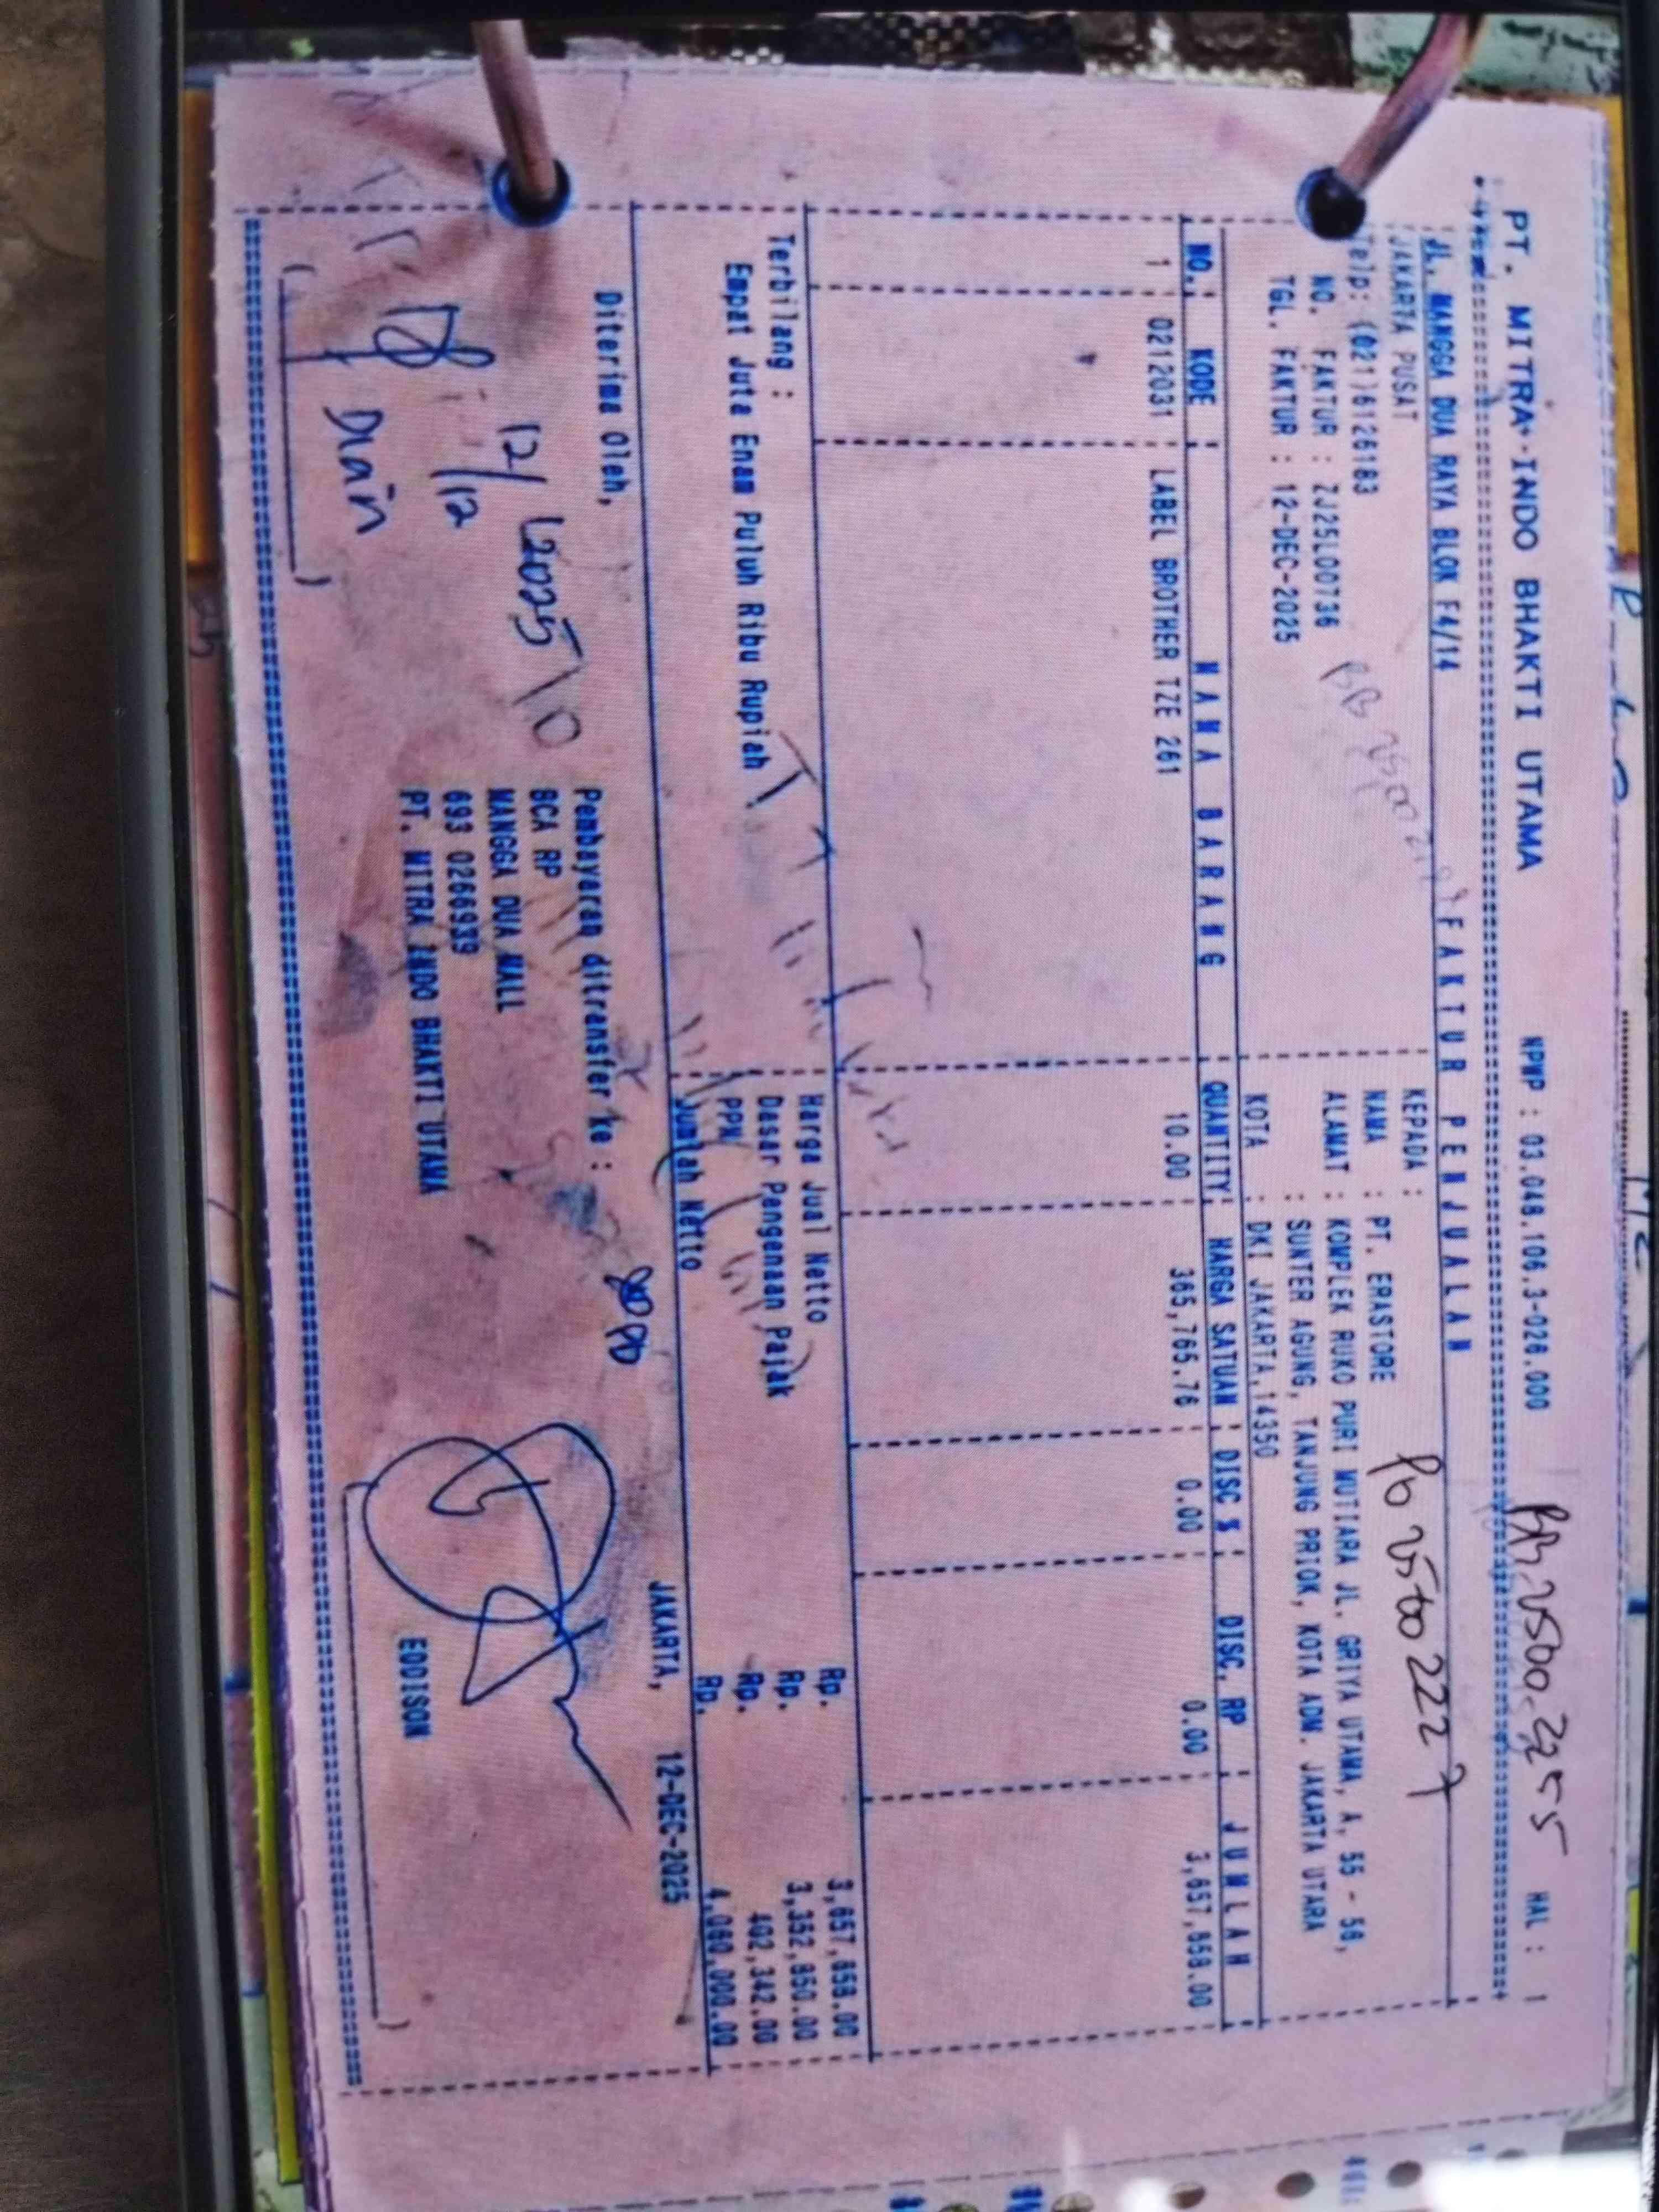 PT. MITRA INDO BHAKTI UTAMA NPWP : 03.048.106.3-026.000 HAL : 1
JL. MANGGA DUA RAYA BLOK F4/14 FAKTUR PENJUALAN
JAKARTA PUSAT KEPADA :
Telp: (021)6126183 NAMA : PT. ERASTORE
PO 25002227
NO. FAKTUR : ZJ25L00736 ALAMAT : KOMPLEK RUKO PURI MUTIARA JL. GRIYA UTAMA, A, 55 - 56,
TGL. FAKTUR : 12-DEC-2025 : SUNTER AGUNG, TANJUNG PRIOK, KOTA ADM. JAKARTA UTARA
KOTA : DKI JAKARTA,14350
NO. KODE NAMA BARANG QUANTITY HARGA SATUAN DISC % DISC. RP JUMLAH
1 0212031 LABEL BROTHER TZE 261 10.00 365,765.76 0.00 0.00 3,657,658.00
Terbilang : Harga Jual Netto Rp. 3,657,658.00
Empat Juta Enam Puluh Ribu Rupiah Dasar Pengenaan Pajak Rp. 3,352,850.00
PPN Rp. 402,342.00
Jumlah Netto Rp. 4,060,000.00
JAKARTA, 12-DEC-2025
Diterima Oleh, Pembayaran ditransfer ke :
BCA RP
12/12 2025 MANGGA DUA MALL
693 0266939
Dian PT. MITRA INDO BHAKTI UTAMA EDDISON